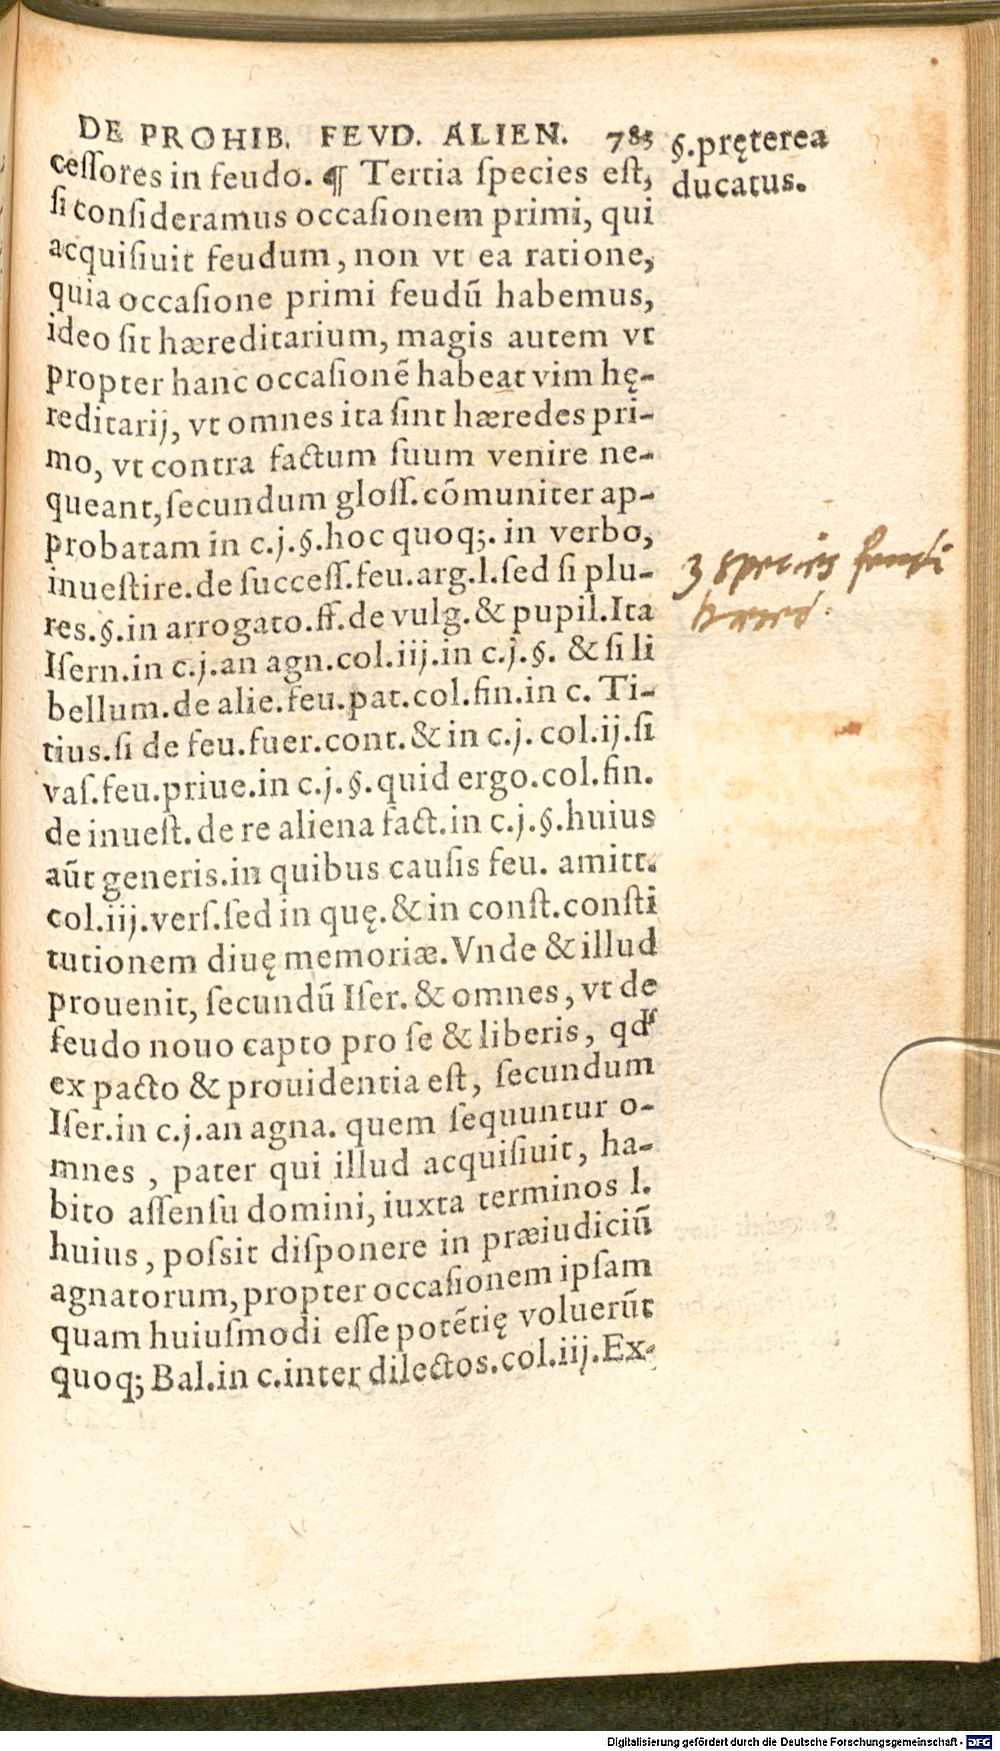 DE PROHIB. FEVD. ALIEN. 785
§.pręterea
ducatus.
ceſſores in feudo. ¶ Tertia ſpecies eſt,
ſi conſideramus occaſionem primi, qui
acquiſiuit feudum, non vt ea ratione,
quia occaſione primi feudū habemus,
ideo ſit hæreditarium, magis autem vt
propter hanc occaſionē habeat vim hę-
reditarij, vt omnes ita ſint hæredes pri-
mo, vt contra factum ſuum venire ne-
queant, ſecundum gloſſ. cōmuniter ap-
probatam in c.j.§.hoc quoq;. in verbo,
inueſtire.de ſucceſſ.feu.arg.l.ſed ſi plu-
res.§.in arrogato.ff.de vulg.& pupil.Ita
Iſern.in c.j.an agn.col.iij.in c.j.§. & ſi li
bellum.de alie.feu.pat.col.fin.in c. Ti-
tius.ſi de feu.fuer.cont.& in c.j. col.ij.ſi
vaſ.feu.priue.in c.j.§.quid ergo.col.fin.
de inueſt.de re aliena fact.in c.j.§.huius
aūt generis.in quibus cauſis feu. amitt.
col.iij.verſ.ſed in quę.& in conſt.conſti
tutionem diuę memoriæ.Vnde & illud
prouenit, ſecundū Iſer. & omnes, vt de
feudo nouo capto pro ſe & liberis, qd'
ex pacto & prouidentia eſt, ſecundum
Iſer.in c.j.an agna. quem ſequuntur o-
mnes, pater qui illud acquiſiuit, ha-
bito aſſenſu domini, iuxta terminos l.
huius, poſsit diſponere in præiudiciū
agnatorum, propter occaſionem ipſam
quam huiuſmodi eſſe potētię voluerūt
quoq; Bal.in c.inter dilectos.col.iij.Ex-
3 species feudi
Digitalisierung gefördert durch die Deutsche Forschungsgemeinschaft - DFG